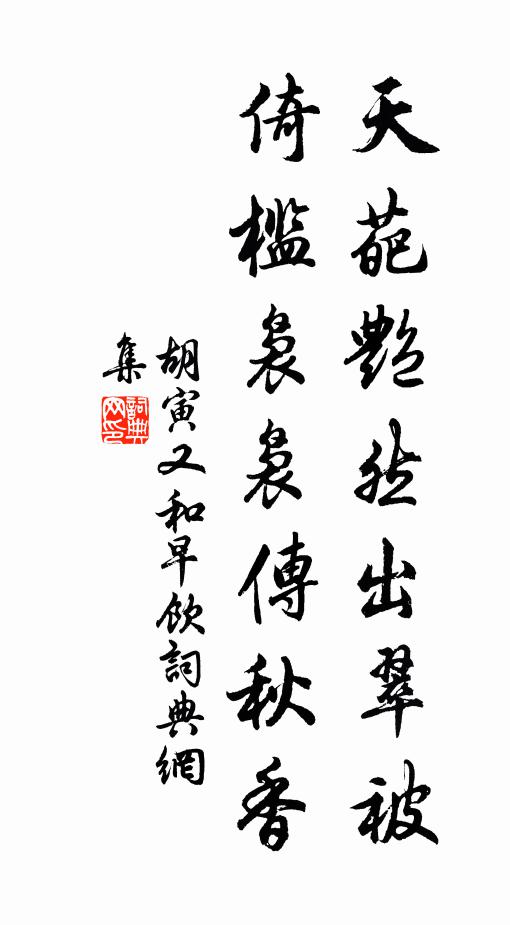 天葩艷然出翠被
倚檻裊裊傳秋香
胡寅又和早飲詞典網
集
詞典
网印